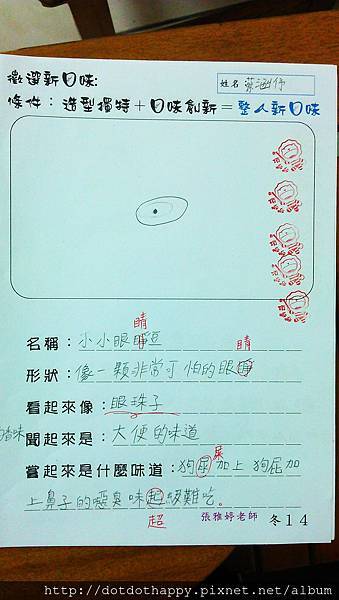 徵選新口味:
姓名 蔡涵伃
條件：造型獨特＋口味創新＝整人新口味
睛
名稱：小小眼睜豆
睛
形狀：像一顆非常可怕的眼睜
看起來像：眼珠子
的香味
聞起來是：大便的味道
屎
嘗起來是什麼味道：狗尿加上狗屁加
上鼻子的噁臭味起級難吃。
超
張雅婷老師
冬14
http://dotdothappy.pixnet.net/album